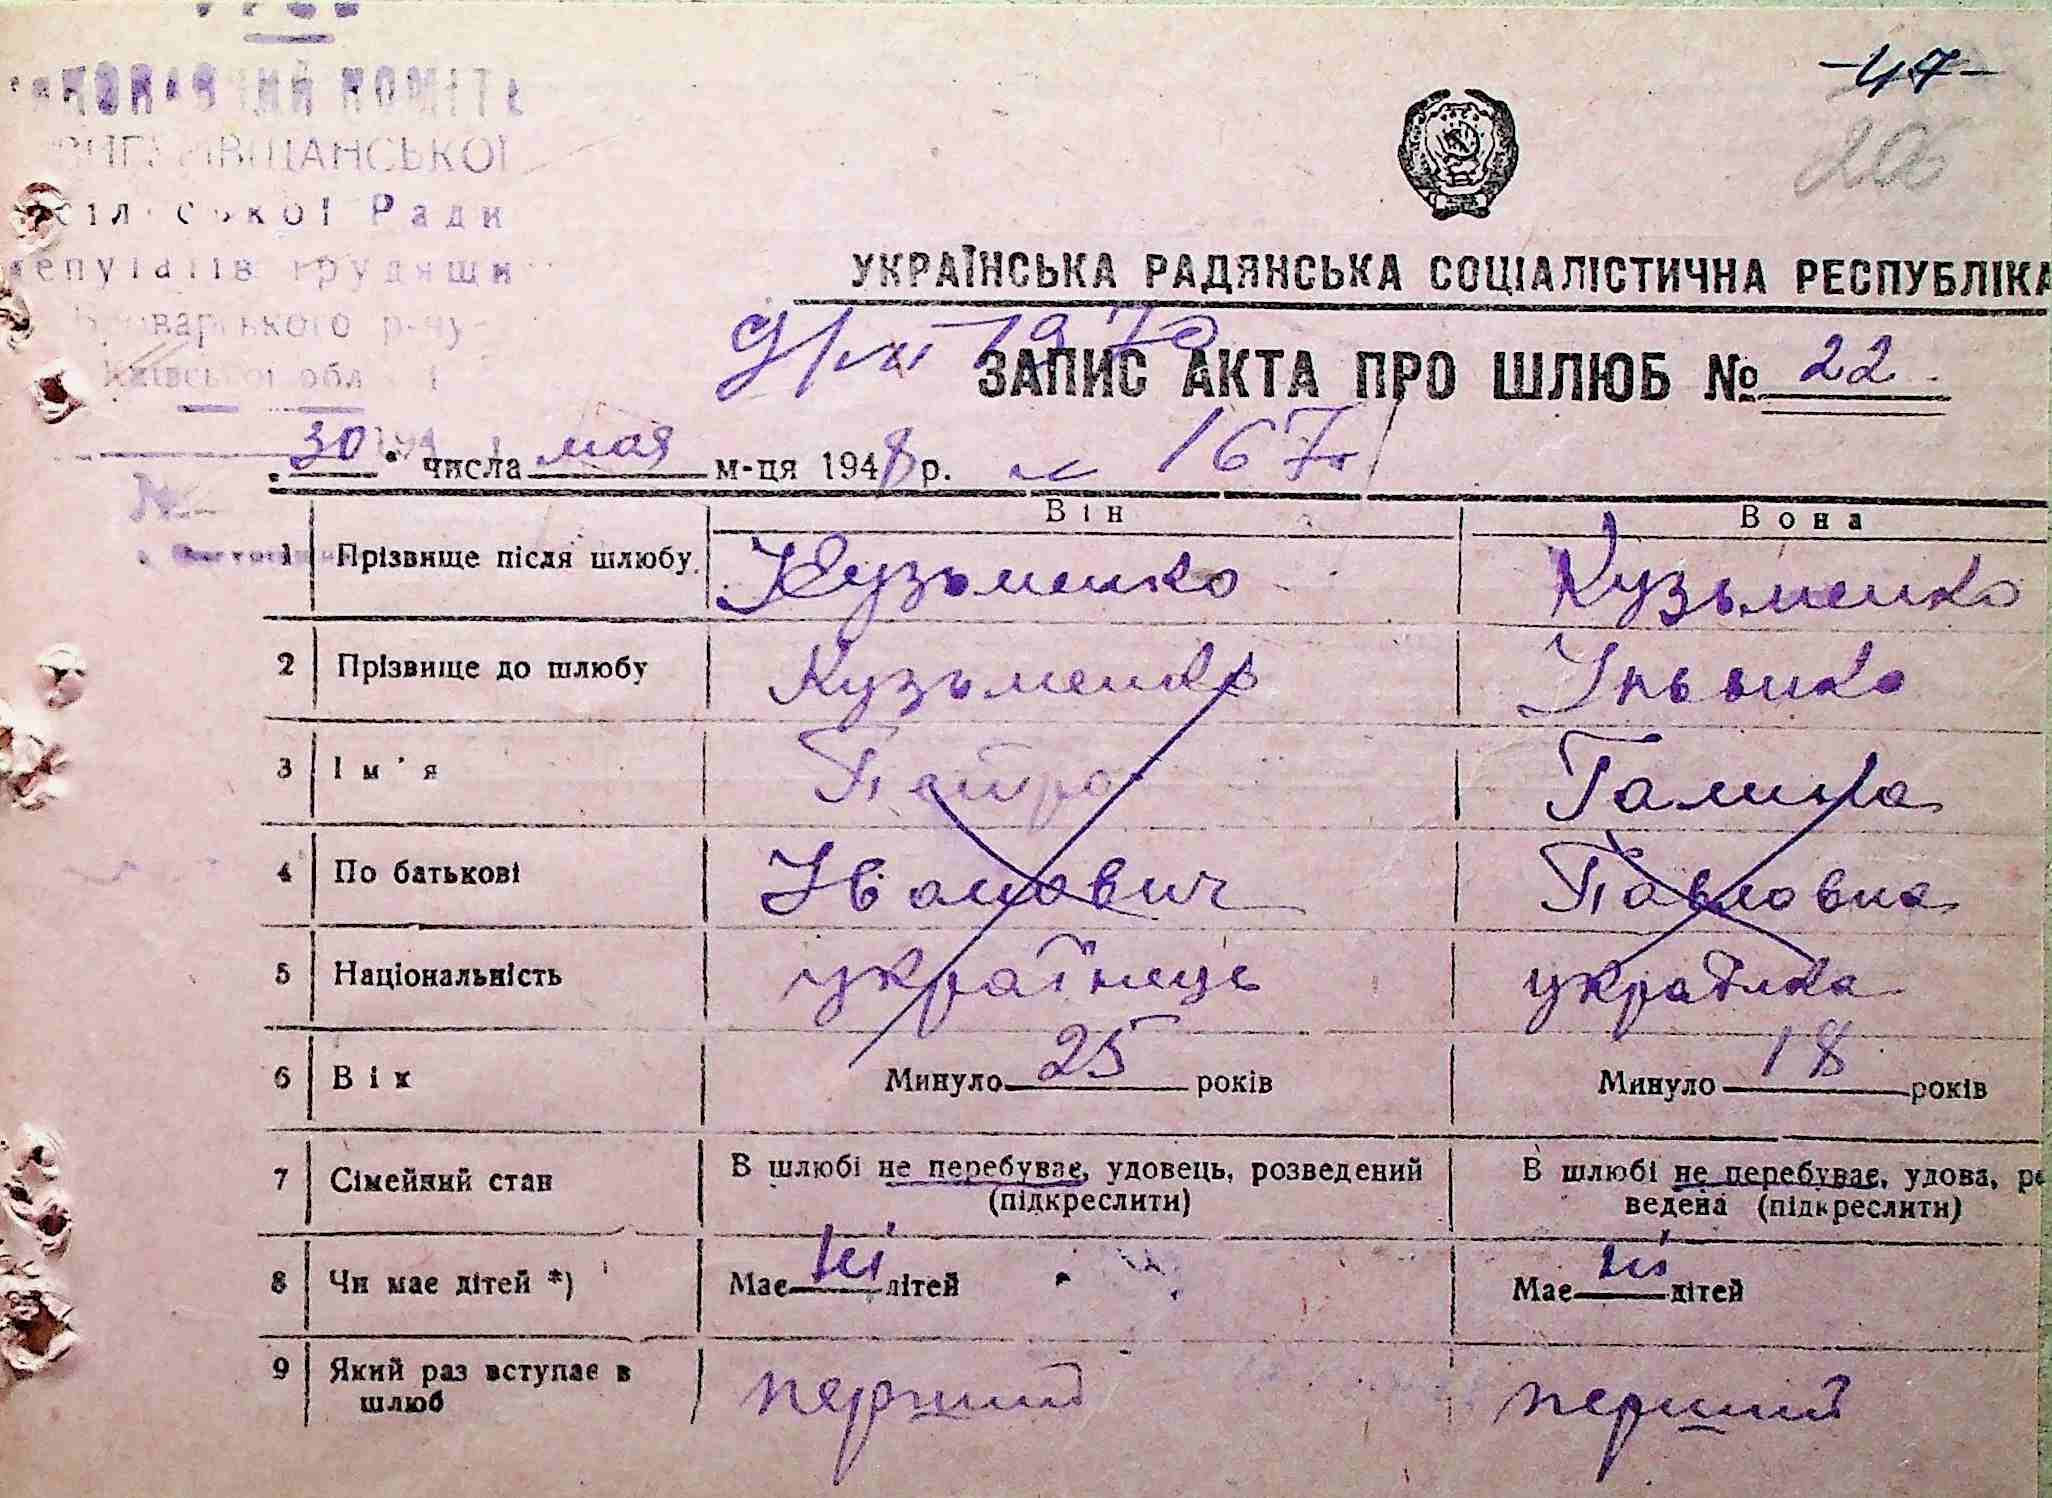 -47-
УКРАЇНСЬКА РАДЯНСЬКА СОЦІАЛІСТИЧНА РЕСПУБЛІКА
ЗАПИС АКТА ПРО ШЛЮБ № 22
30 числа мая м-ця 1948 р.
167
сільської Ради
депутатів трудящи
Броварського р-ну
Київської обл
№
Він Вона
1 Прізвище після шлюбу Кузьменко Кузьменко
2 Прізвище до шлюбу Кузьменко
3 Ім'я Петро Галина
4 По батькові Іванович Павловна
5 Національність українець українка
6 Вік Минуло 25 років Минуло 18 років
7 Сімейний стан В шлюбі не перебуває, удовець, розведений (підкреслити) В шлюбі не перебуває, удова, ро
ведена (підкреслити)
8 Чи має дітей *) Має ні дітей Має ні дітей
9 Який раз вступає в шлюб перший перший